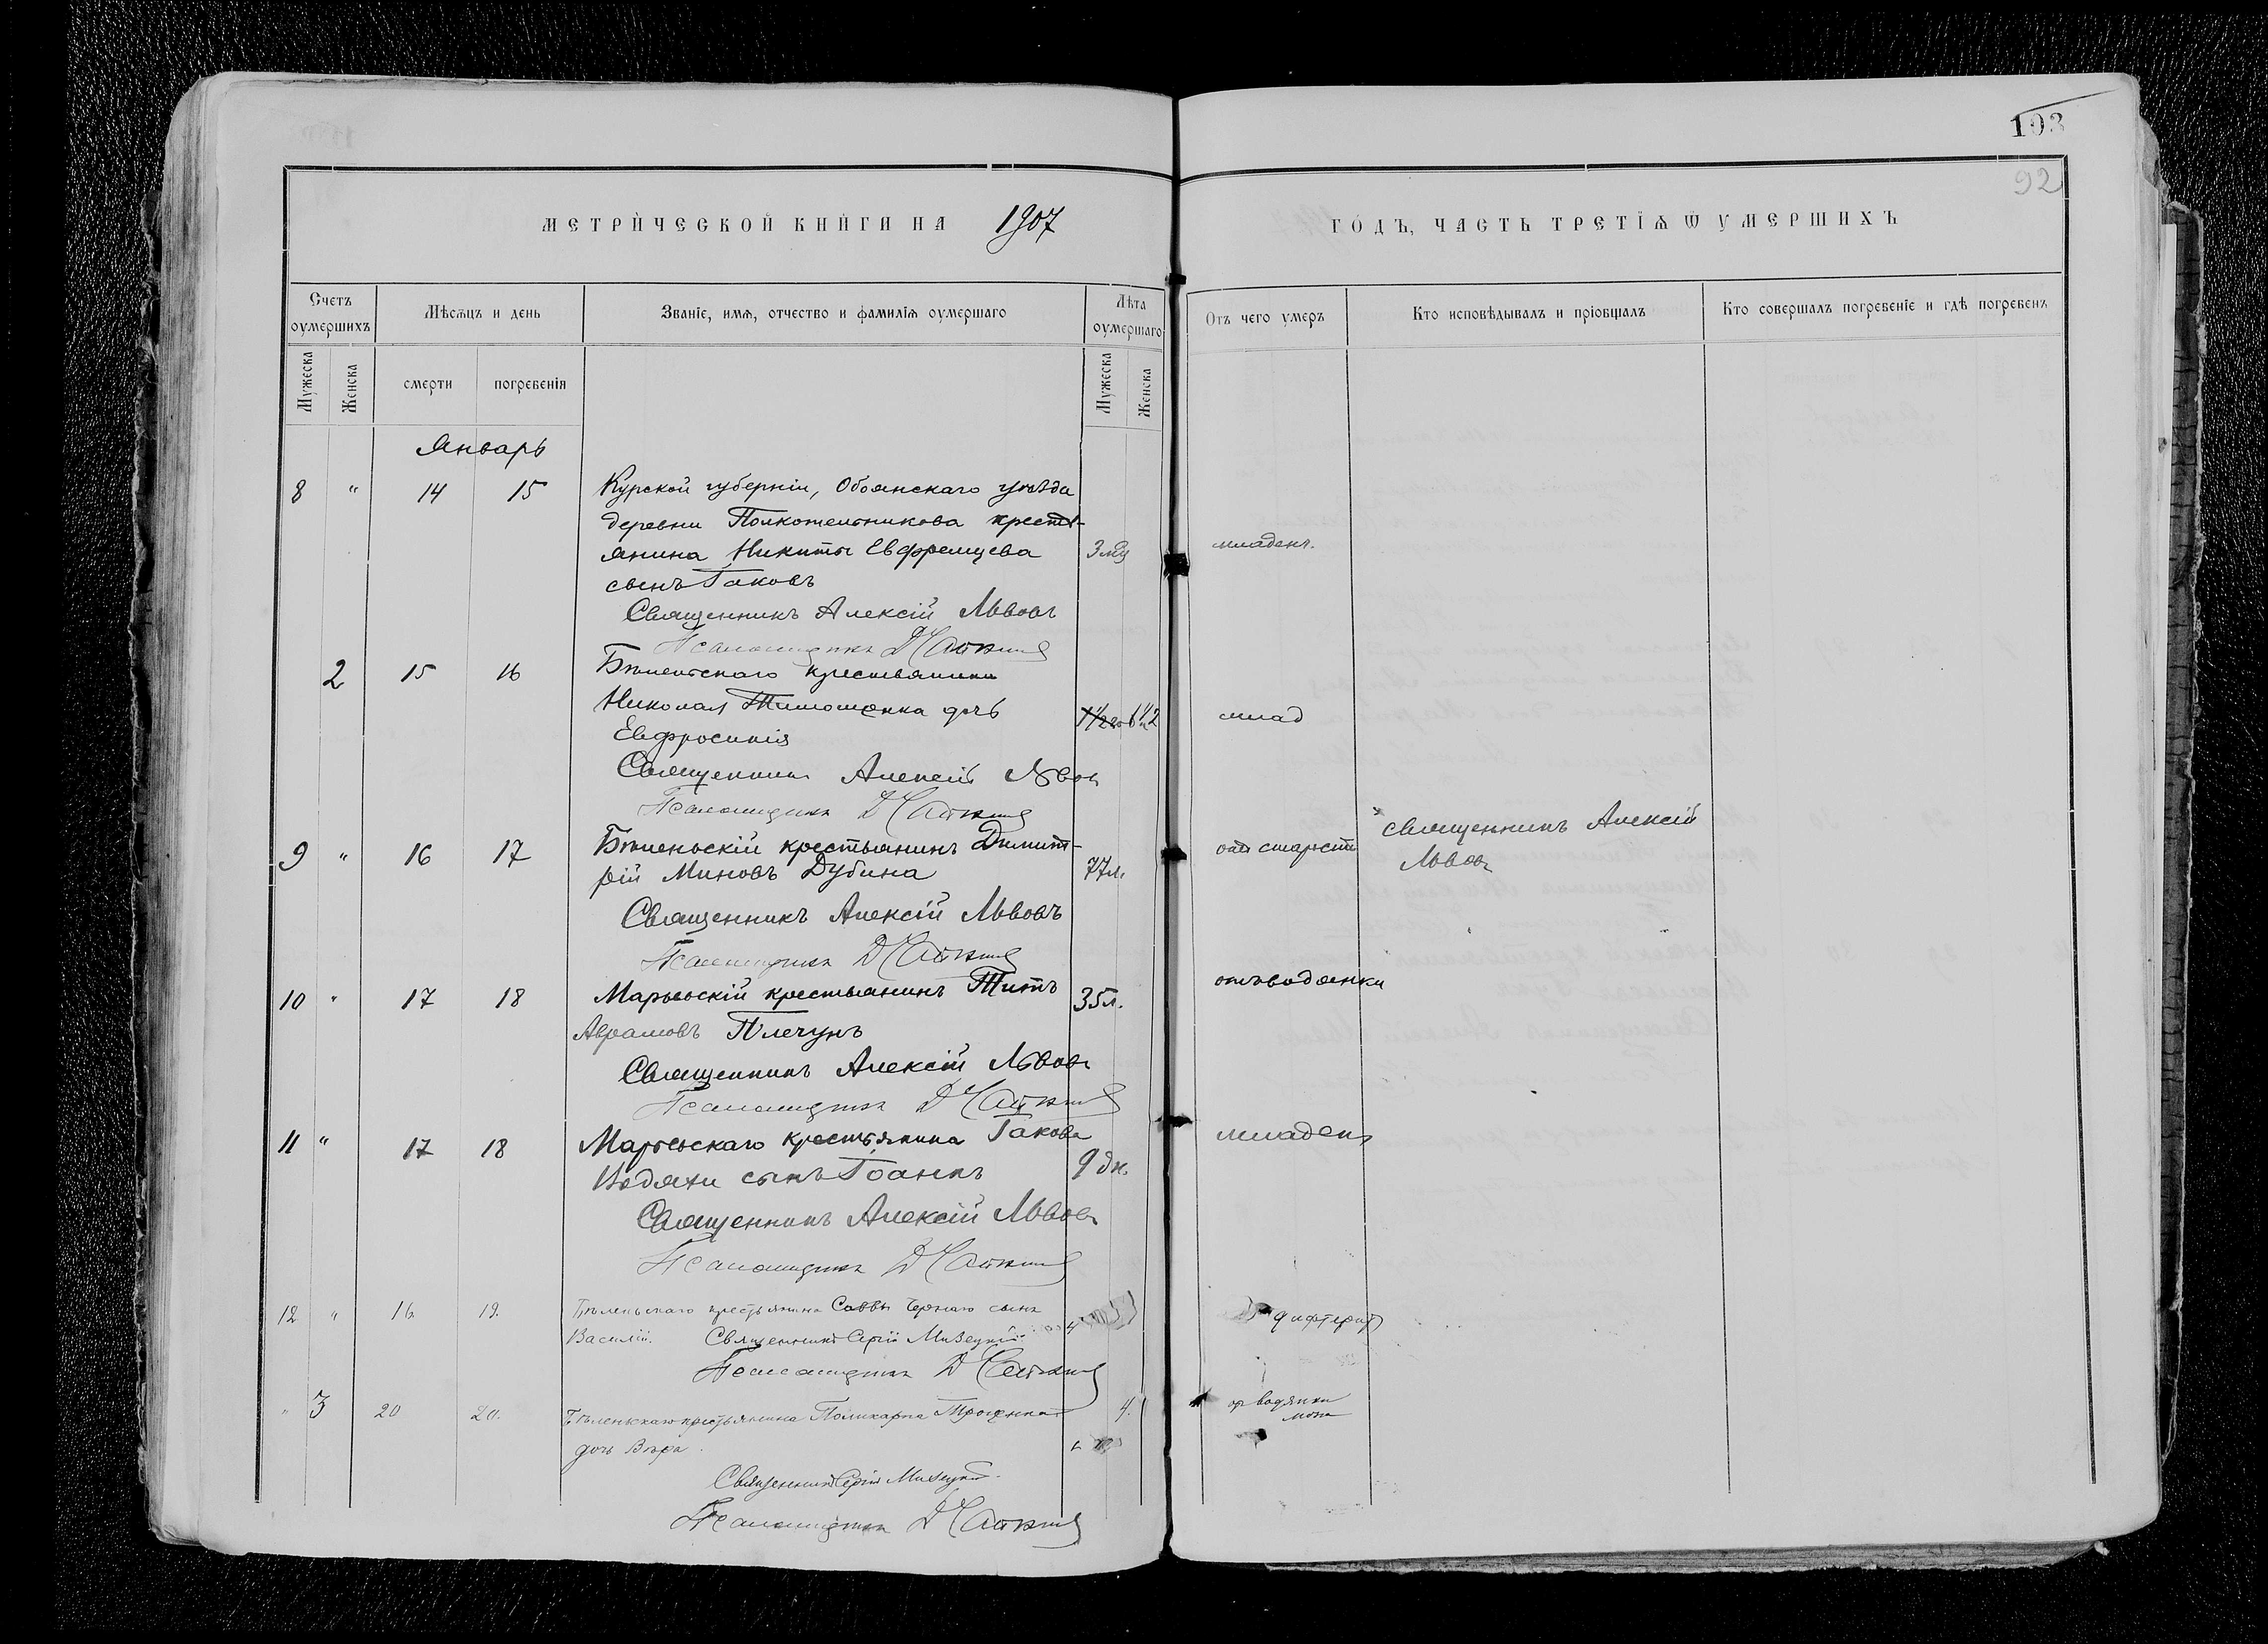 103
92
МЕТРИЧЕСКОЙ КНИГИ НА 1907 ГОДЪ, ЧАСТЬ ТРЕТІѦ Ѿ УМЕРШИХЪ
Счетъ оумершихъ
Мѣсѧцъ и день
Званіе, имѧ, отчество и фамиліѧ оумершаго
Лѣта оумершаго
Отъ чего умеръ
Кто исповѣдывалъ и пріобщалъ
Кто совершалъ погребеніе и гдѣ погребенъ
Мужеска
Женска
смерти
погребенія
Мужеска
Женска
Январь
8 " 14 15 Курской губерніи, Обоянскаго уѣзда
деревни крестья-
янина Никиты Евфремцева 3 мц младенч.
сынъ Іаковъ
Священникъ Алексій Львовъ
Псаломщикъ
2 15 16 крестьянина
Николая Тимошенка дочь 1 1/2 млад
Евфросинія
Священникъ Алексій Львовъ
Псаломщикъ
9 " 16 17 Бѣленьскій крестьянинъ Димит- отъ старости священникъ Алексій
рій Миновъ Дубина 77 л. Львовъ
Священникъ Алексій Львовъ
Псаломщикъ
10 " 17 18 Марьевскій крестьянинъ Титъ 35 л. отъ водянки
Аврамовъ Плечунъ
Священникъ Алексій Львовъ
Псаломщикъ
11 " 17 18 Марьевскаго крестьянина Іакова младен
сынъ Іоаннъ 9 дн.
Священникъ Алексій Львовъ
Псаломщикъ
12 " 16 19. Бѣленьскаго крестьянина Саввы Чернаго сынъ дифтерит
Василій. Священникъ Сергій 4
Псаломщикъ
" 3 20 20. Бѣленькаго крестьянина Поликарпа Троценка 4. от водянки
дочь Вѣра.
Священникъ Сергій
Псаломщикъ